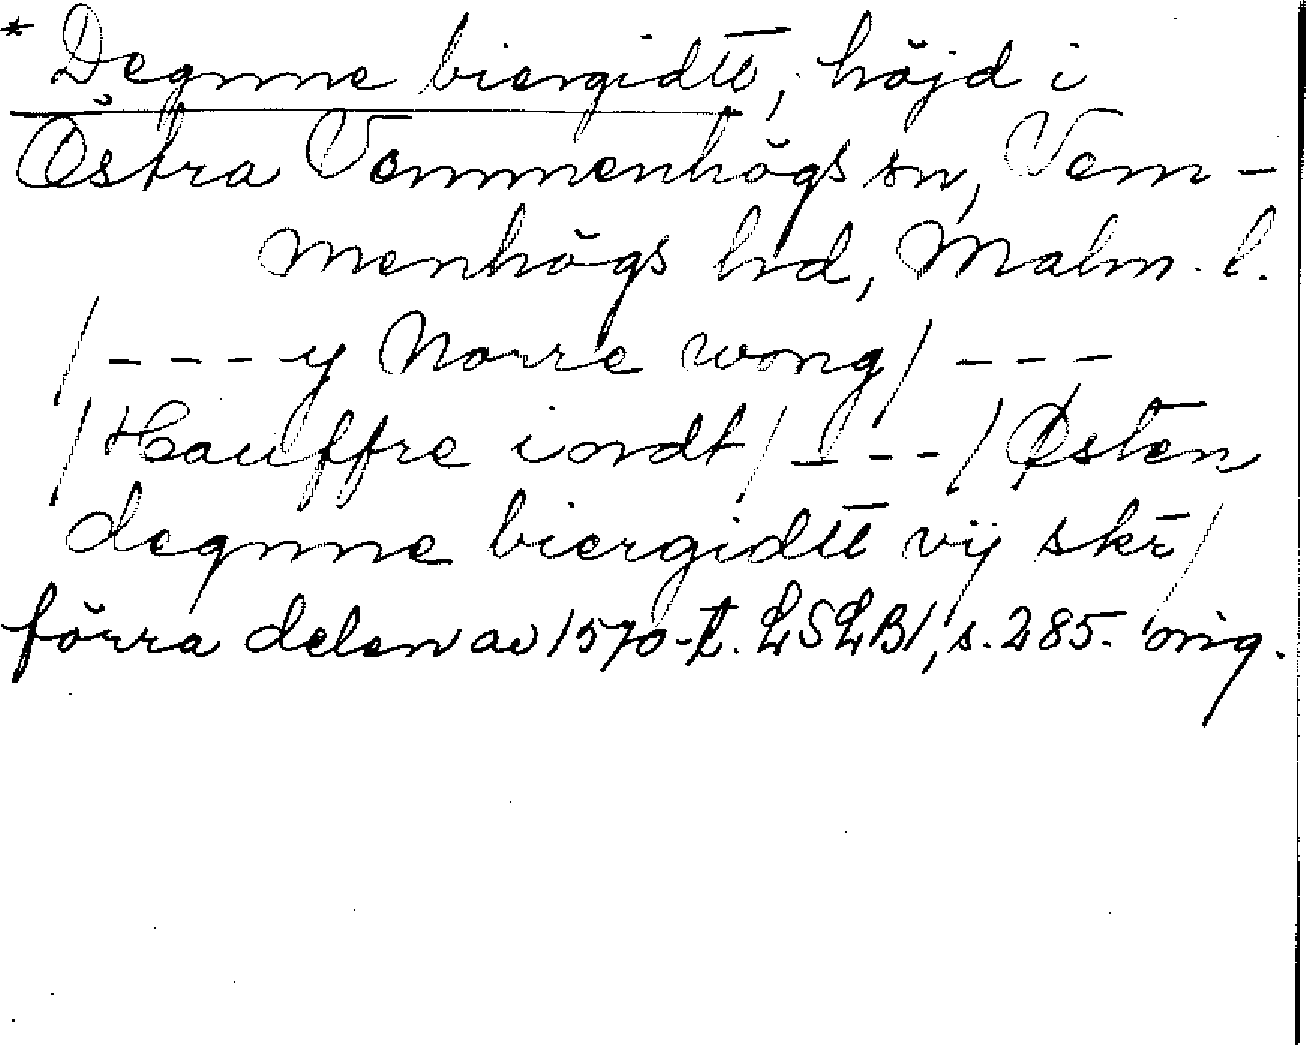 * Degnne biergidtt, höjd i
Östra Vemmenhögs sn, Vem-
menhögs hd, Malm. l.
/ - - - y Norre wong / - - -
/ Hauffre iordt / - - - / Østen
degnne biergidtt vij skr /
förra delen av 1570-t. LSLB1, s. 285. orig.